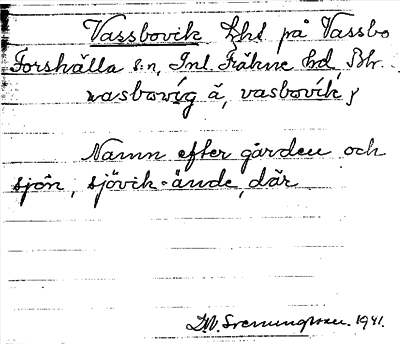 Vassbovik Lht på Vassbo
Forshälla s:n, Inl. Fräkne hd, Bhl.
vasbovíg å, vasbovík,
Namn efter gården och
sjön, sjövik-ände, där
D.W. 1941.